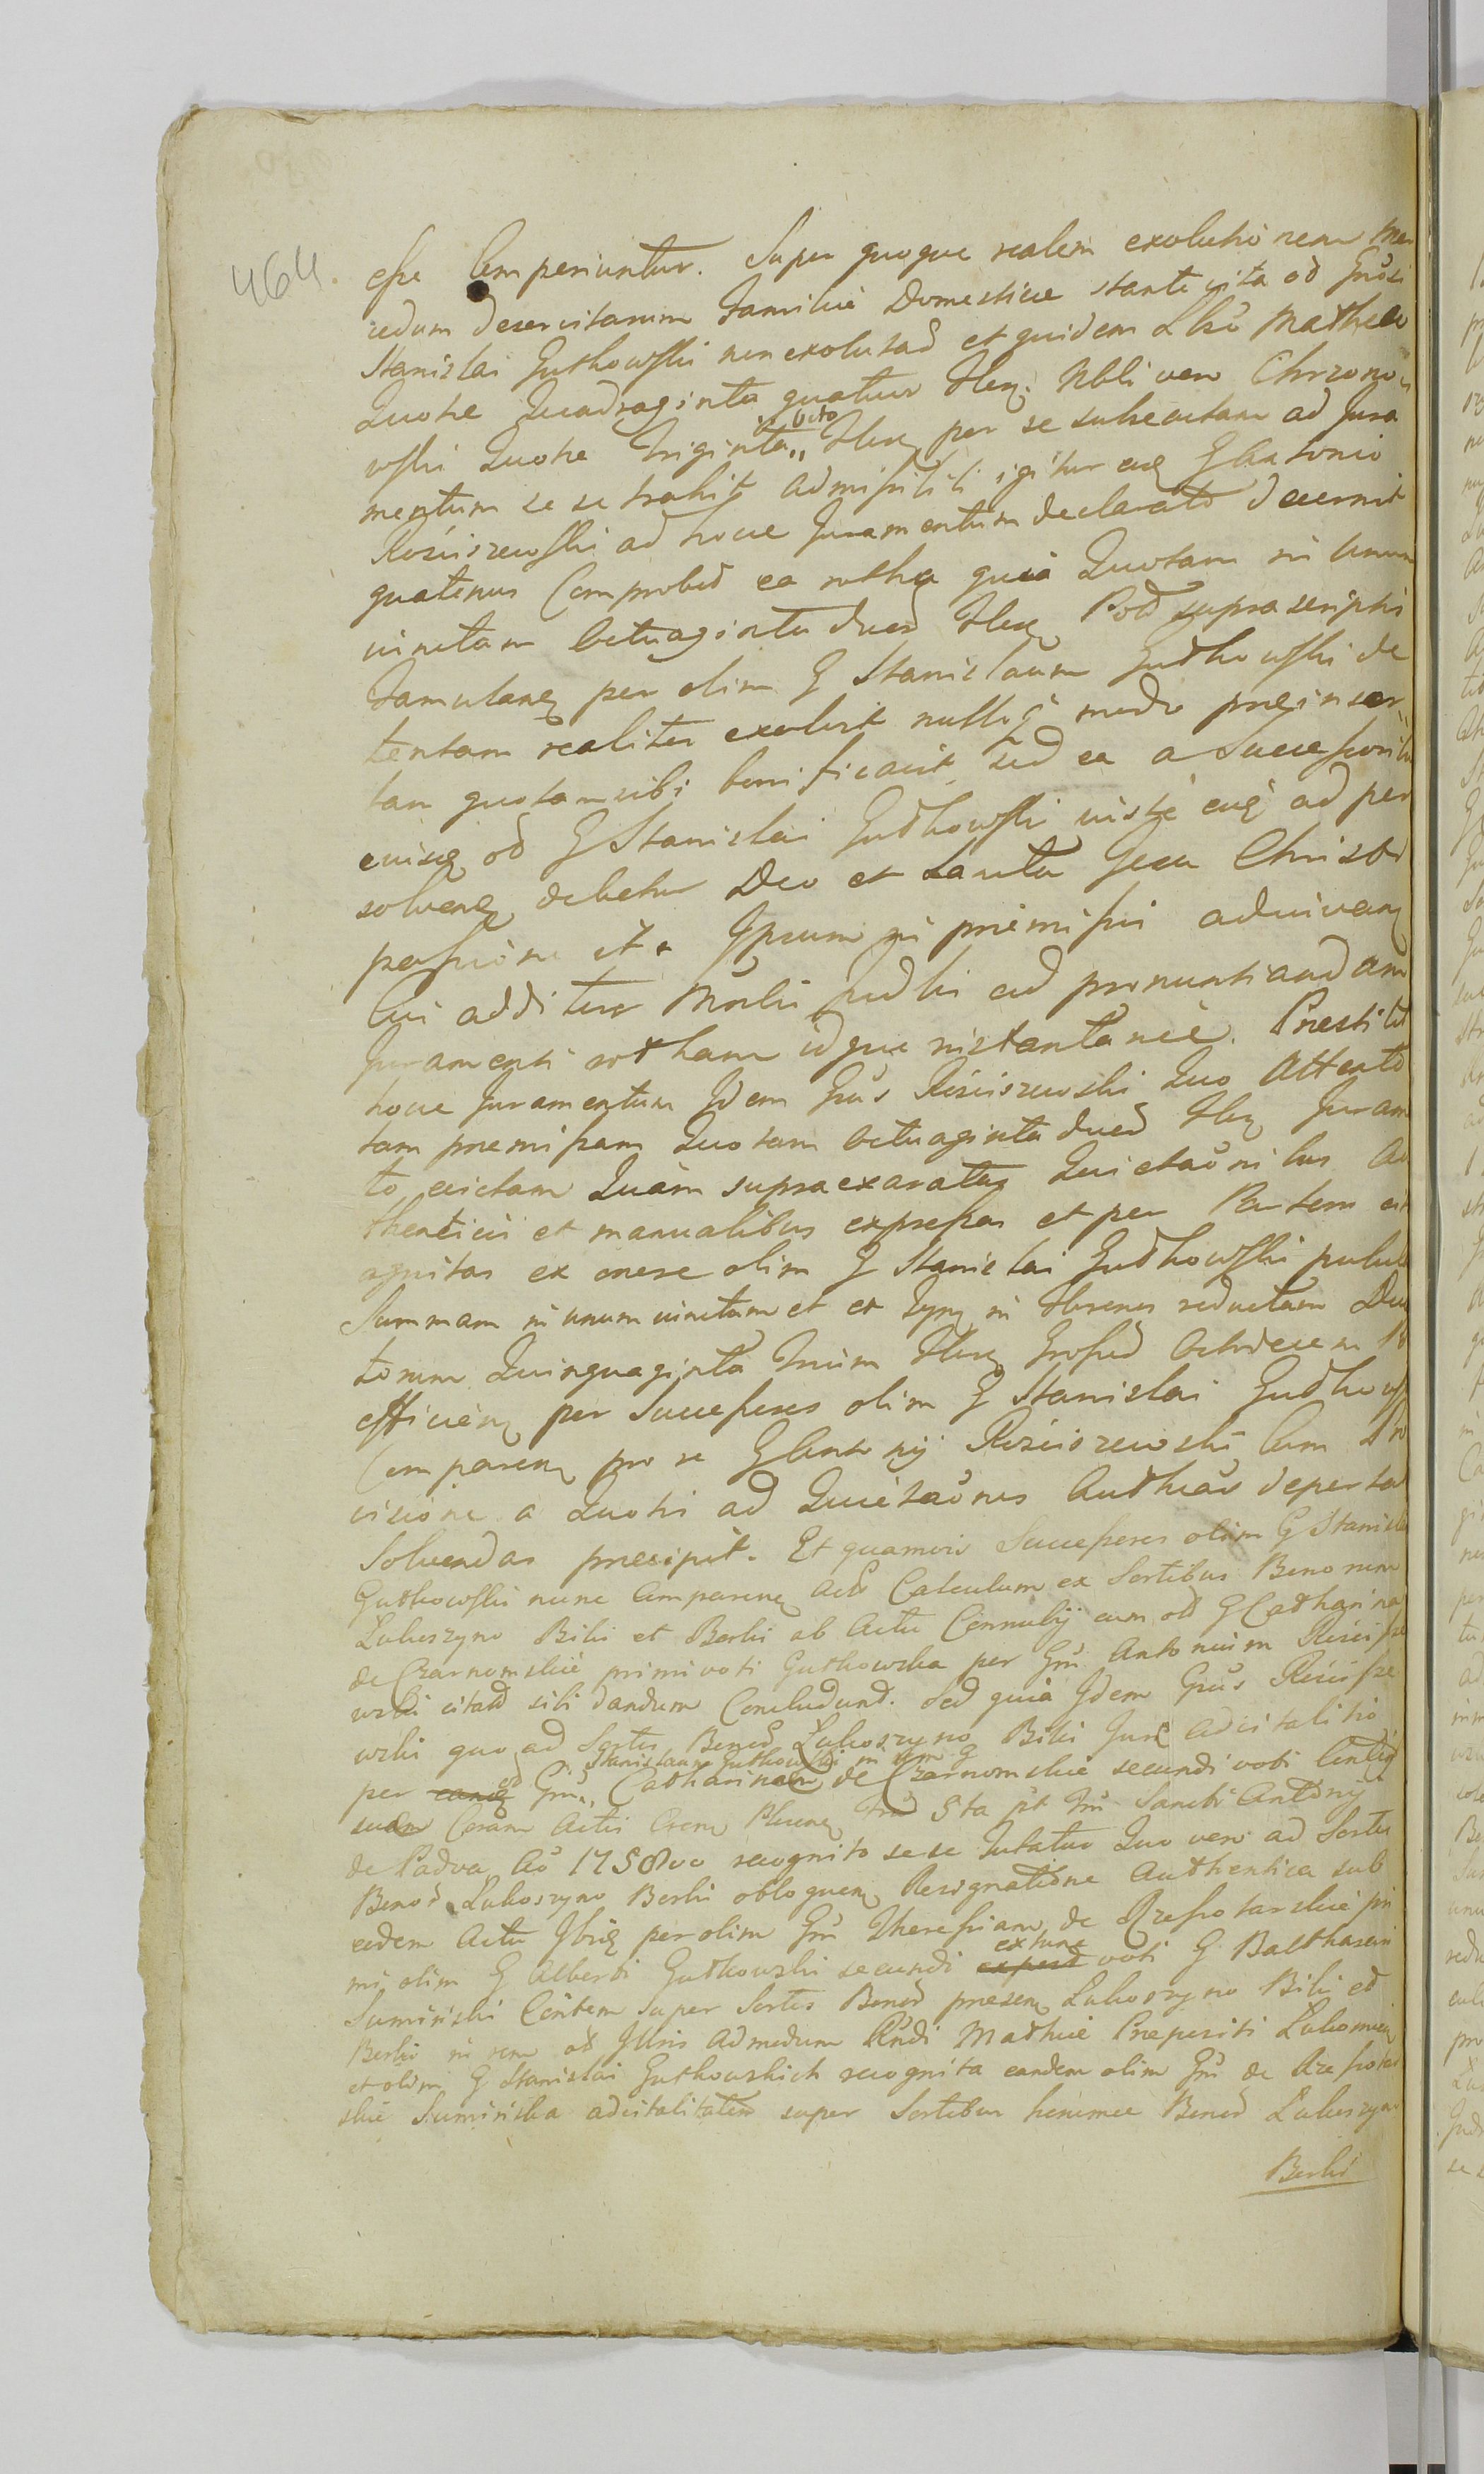 464.
esse Comperiuntur. Super quoque realem exolutionem Mer
cedum deservitarum Familiæ Domesticæ stante vita od Gnosi
Stanislai Gutkowski non exolutas et quidem Lbso Matheo
Quotæ Quadraginta quatuor flen. Nbli vero Chrzono
wski Quotæ Triginta octo flen per se subsecutam ad Jura
mentum se se trahit admissibili igitur eoq G Antonio
Rościszewski ad hocce Juramentum declarato decernit
quatenus Comprobet ea rotha quia Quotam in unum
iunctam octuaginta duos flen Pod suprascriptis
Famulanq per olim G Stanislaum Gudkowski de
tentam realiter exolvit nullo modo præinser
tam quotam sibi bonificavit sed ea a Successorib
eiusq od G Stanislai Gudkowski iuste eiq ad per
solvenq debetur Deo et Sancta Jesu Christi
passione ita Ipsum in præmissis adiuvanq
Cui additur Mrlis Judlis ad pronuntiandam
Juramenti rotham idque instantanie. Præstito
hocce Juramentum Idem Gnus Rościszewski Quo Attento
tam præmissam Quotam octuaginta duos flen Juram
to evictam Quam supraexaratas Quietaonibus Au
thenticis et manualibus expressas et per Partem cit
agnitas ex onere olim G Stanislai Gudkowski pulul
Summam in unum iunctam et ex Tynq in florenos reductam Duc
torum Quinquaginta Trium flen Grossos Octodecem Pl
efficienq per Successores olim G Stanislai Gudkowski
Comparenq pro se G Antonij Rościszewski Cum Pro
visione a Quotis ad Quietaones Authcas deportat
Solvendas præcipit. Et quamvis Successores olim G Stanislai
Gutkowski nunc Comparenq Actu Calculum ex Sortibus Bonorum
Luboszyno Biki et Berki ab Actu Connubij cum od G Catharina
de Czarnomskie primivoti Gutkowska per Gm Antonium Rościsze
wski citatos sibi dandum Concludunt. Sed quia Idem Gnus Rościsze
wski quo ad Sortes Bonor Luboszyno Biki Jure advitalitio
per Gm Stanislaum Gutkowski in rem G Catharinam de Czarnomskie secundi voti Contlq
suam Coram Actis Cren Plocenq fria 5ta pt fm Sancti Antonij
de Padva Ao 1758vo recognito sese Tutatur Quo vero ad Sortes
Bonor Luboszyno Berki obloquenq Resignatione Authentica sub
eodem Actu Ibiq per olim Gm Theressiam de Rzeszotarskie pri
mi olim G Alberti Gutkowski secundi extunc voti G Balthasari
Sumiński Cortem super Sortes Bonor præsenq Luboszyno Biki et
Berki in rem od Illris Admodum Rndi Mathiæ Præpositi Lukomien
et olim G Stanislai Gutkowskich recognita eandem olim Gm de Rzeszotar
skie Sumińska advitalitatem super Sortibus hinimee Bonor Luboszyno
Berki